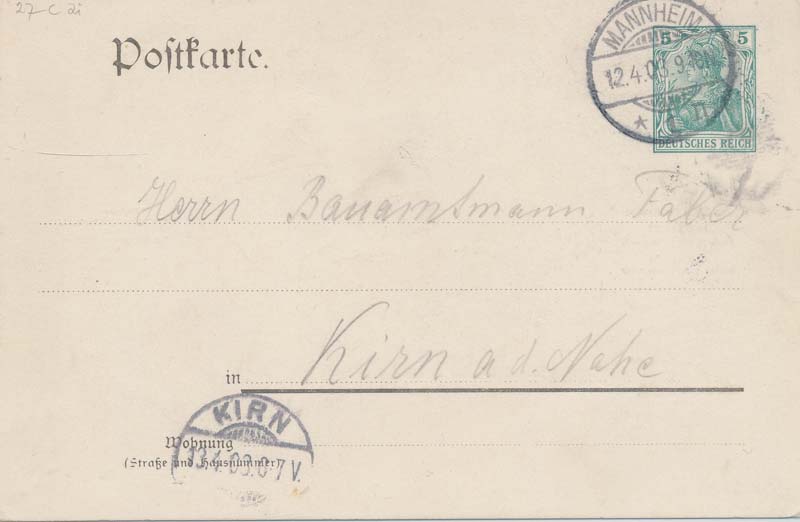 27 C 2i
Postkarte.
MANNHEIM
12.4.03.9
5 5
DEUTSCHES REICH
Herrn Bauamtmann Faber
in Kirn a. d. Nahe
KIRN
13.4.03.6-7 V.
Wohnung
(Straße und Hausnummer)